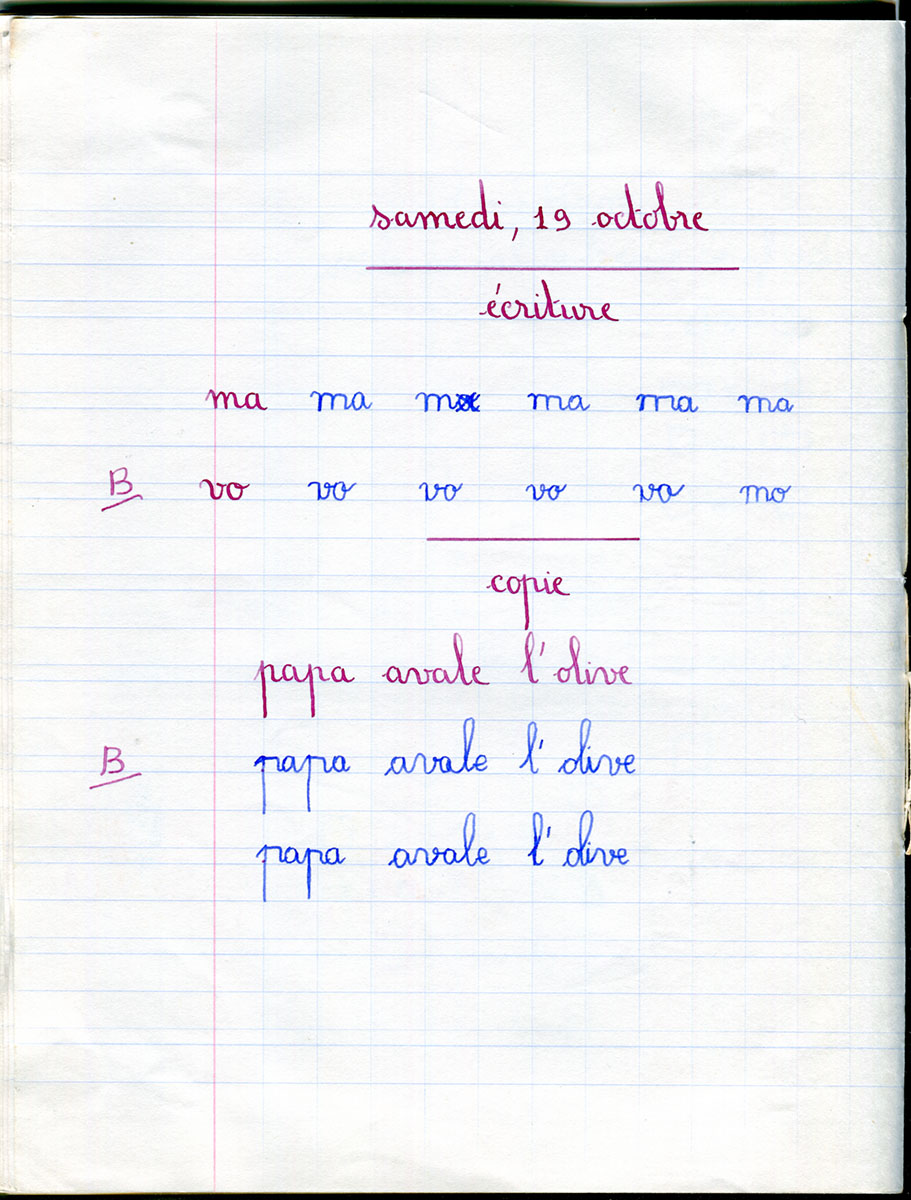 samedi, 19 octobre
écriture
ma ma ma ma ma
B vo vo vo vo vo mo
copie
papa avale l'olive
B papa avale l'olive
papa avale l'olive